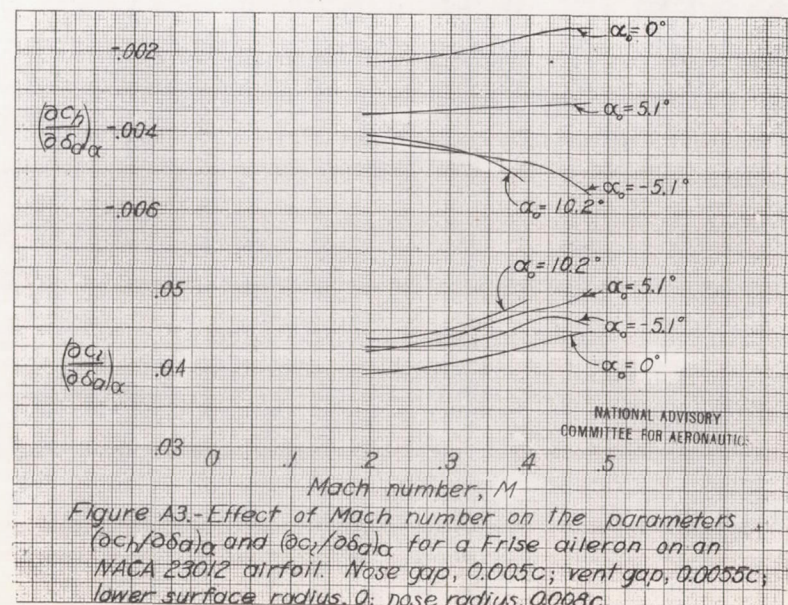 α₀ = 0°
-.002
(∂c_h/∂δ_a)_α
-.004
α₀ = 5.1°
-.006
α₀ = -5.1°
α₀ = 10.2°
α₀ = 10.2°
.05
α₀ = 5.1°
α₀ = -5.1°
(∂c_l/∂δ_a)_α
.04
α₀ = 0°
NATIONAL ADVISORY
COMMITTEE FOR AERONAUTICS
.03
0 .1 .2 .3 .4 .5
Mach number, M
Figure A3.-Effect of Mach number on the parameters
(∂c_h/∂δ_a)_α and (∂c_l/∂δ_a)_α for a Frise aileron on an
NACA 23012 airfoil. Nose gap, 0.005c; vent gap, 0.0055c;
lower surface radius, 0; nose radius